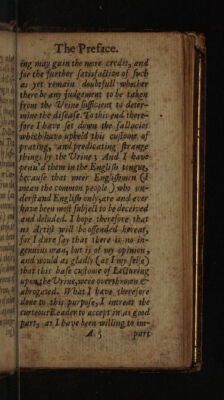 The Preface.
ing may gain the more credit, and
for the further satisfaction of such
as yet remain doubtfull whether
there be any judgement to be taken
from the Urine sufficient to deter-
mine the disease. To this end there-
fore I have set down the fallacies
which have upheld this custome of
prating, and predicating strange
things by the Urine; And I have
penn'd them in the English tongue,
because that meer Englishmen (I
mean the common people) who un-
derstand English only, are and ever
have been most subject to be deceived
and deluded. I hope therefore that
no Artist will be offended hereat,
for I dare say that there is no in-
genuous man, but is of my opinion,
and would as gladly (as I my selfe)
that this base custome of Lecturing
upon the Urine, were overthrown &
abrogated. What I have therefore
done to this purpose, I intreat the
curteous Reader to accept in as good
part, as I have been willing to im-
A 5 part